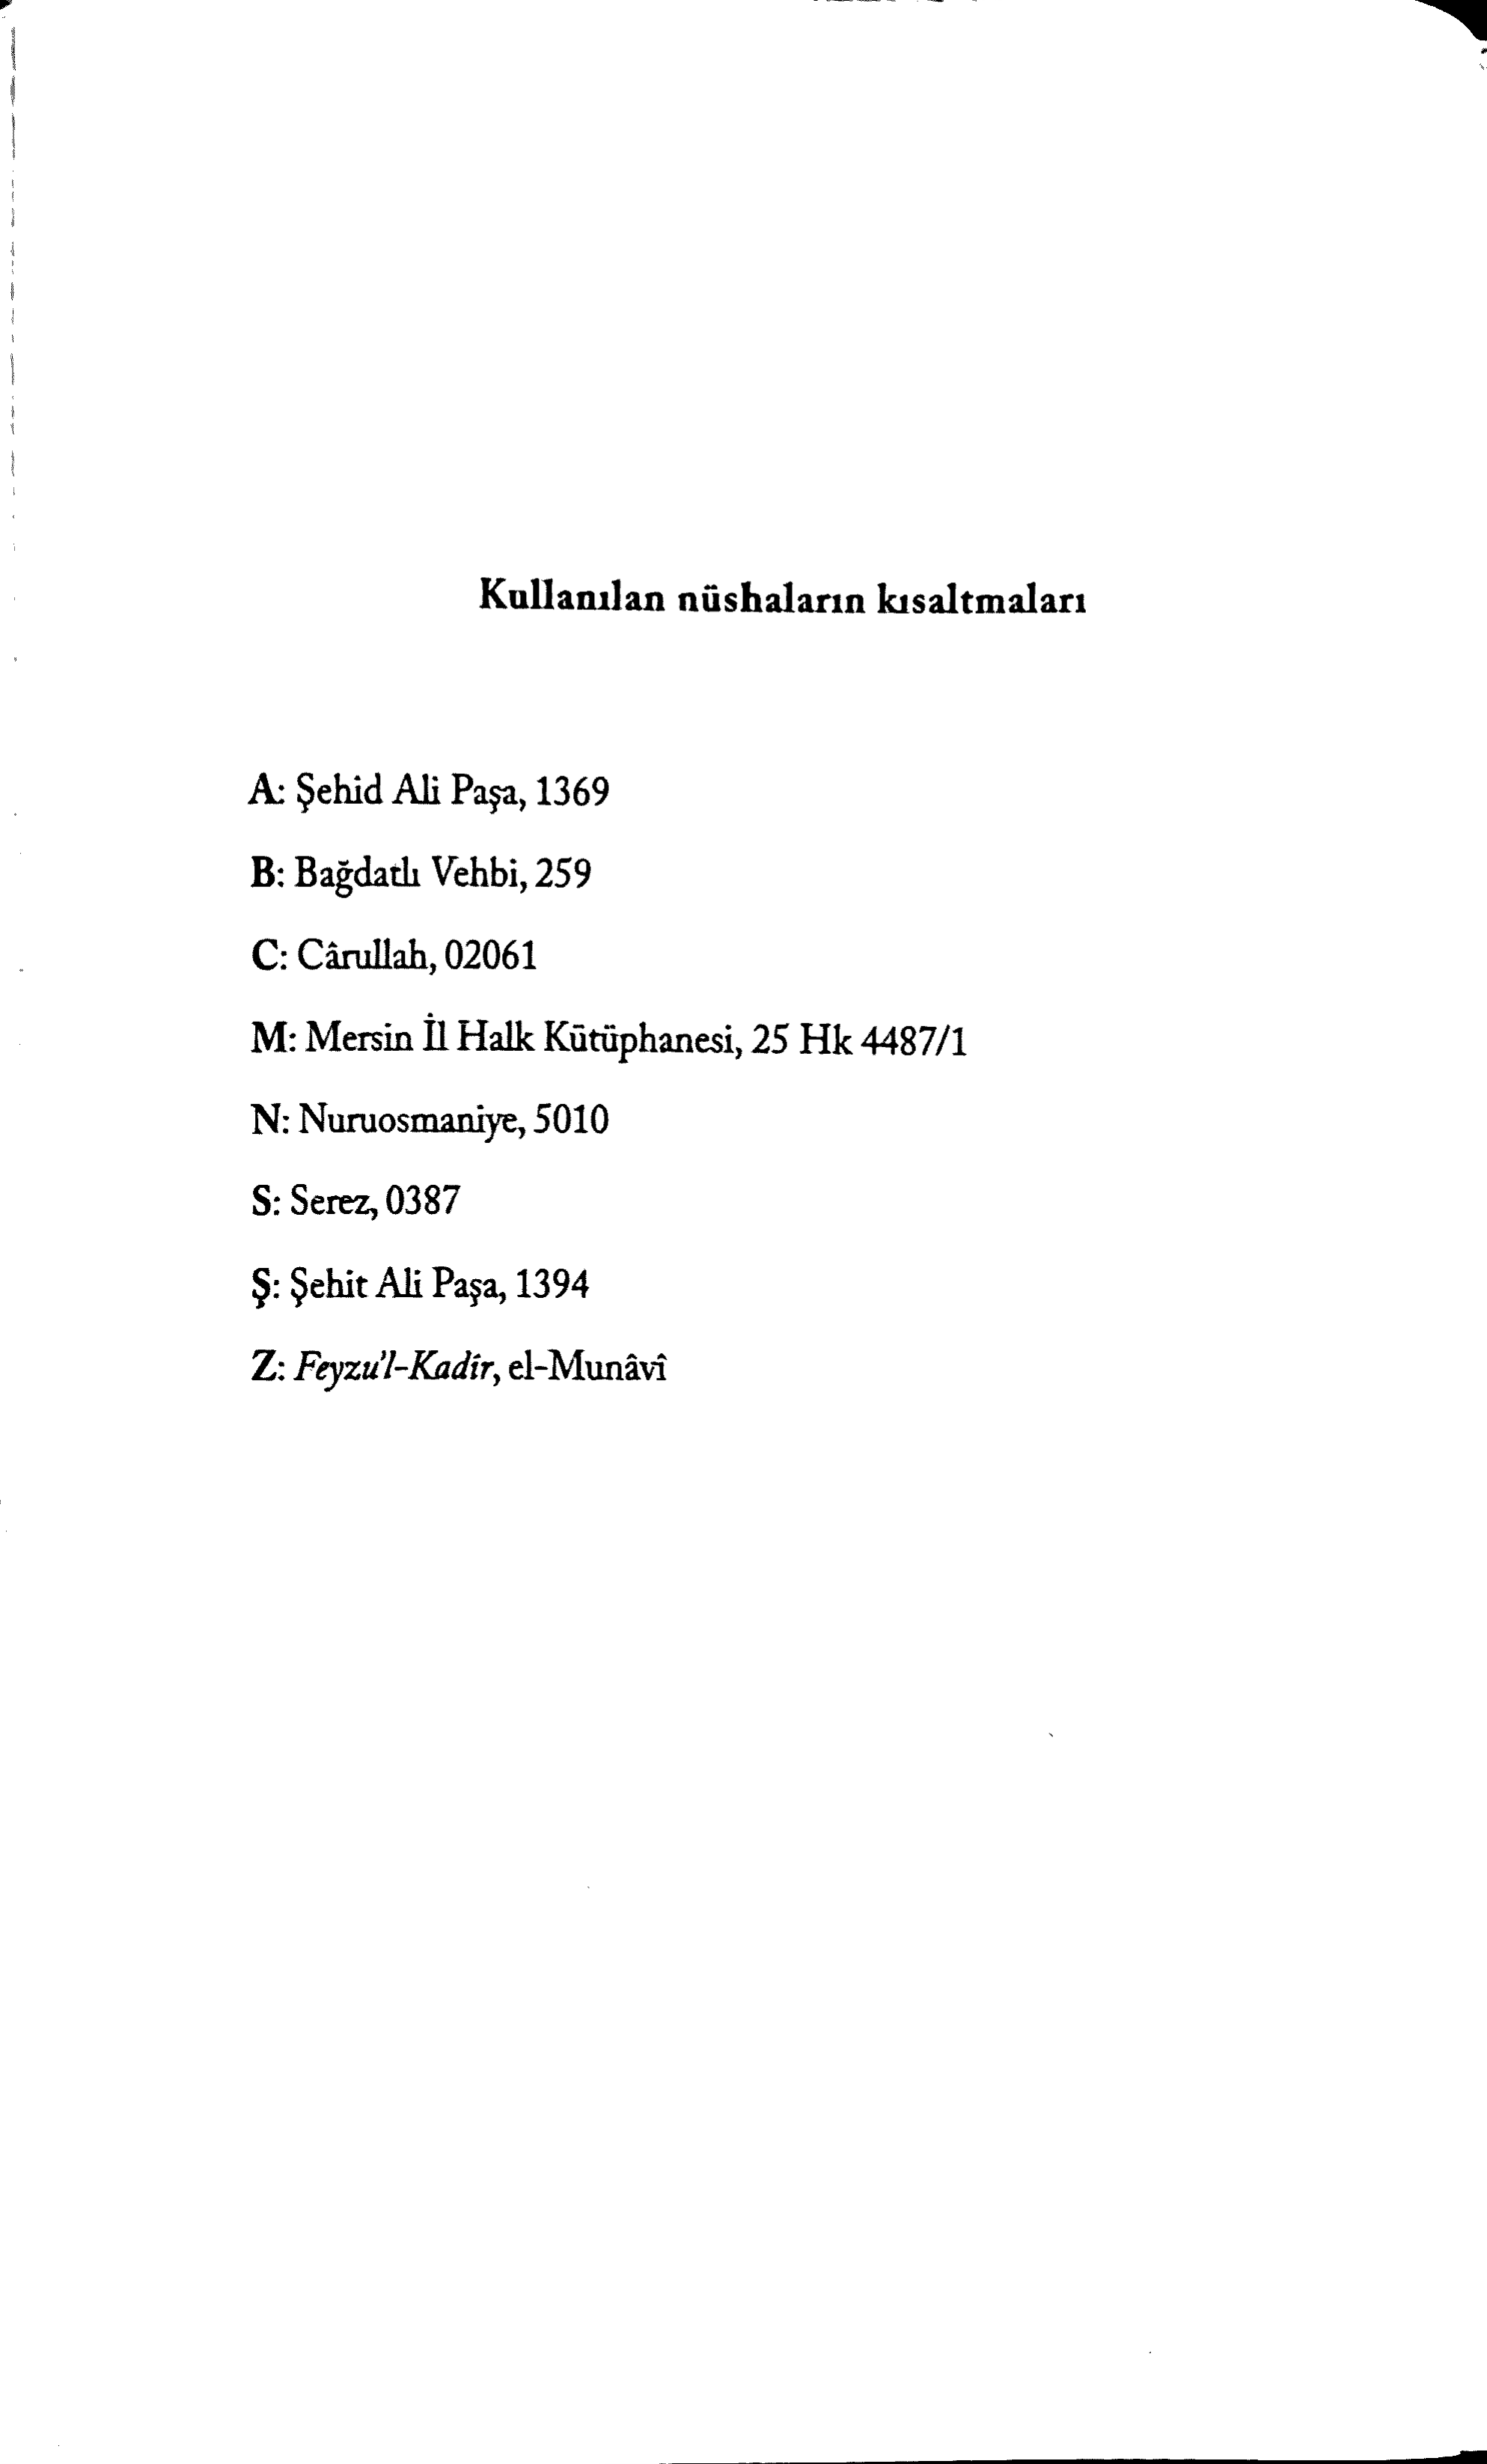 Kullanılan nüshaların kısaltmaları
A: Şehid Ali Paşa, 1369
B: Bağdatlı Vehbi, 259
C: Cârullah, 02061
M: Mersin İl Halk Kütüphanesi, 25 Hk 4487/1
N: Nuruosmaniye, 5010
S: Serez, 0387
Ş: Şehit Ali Paşa, 1394
Z: Feyzu'l-Kadîr, el-Munâvî